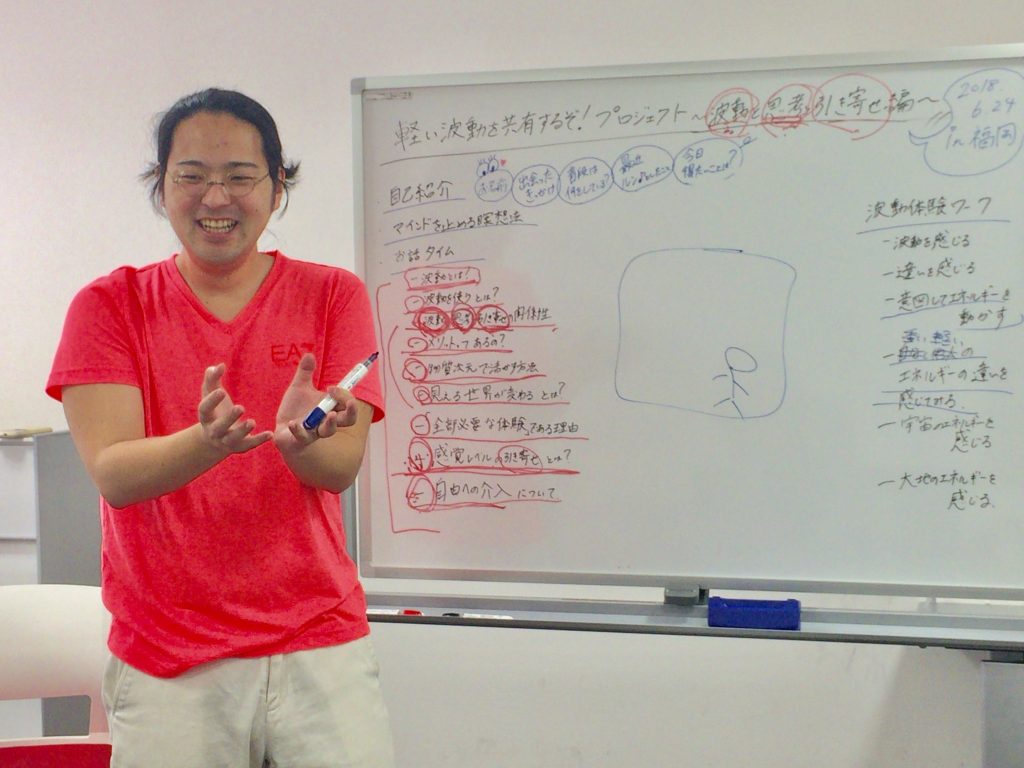 軽い波動を共有するぞ!プロジェクト〜波動と思考と引き寄せ編〜
2018.
6.24
in 福岡
自己紹介
お名前
出会った
きっかけ
普段は
何をしている?
最近
今日
マインドを止める瞑想法
お話タイム
一波動とは?
一波動を使うとは?
波動 思考 引き寄せの関係性
一メリットってあるの?
一物質次元で活かす方法
見える世界が変わるとは?
一全部必要な体験である理由
感覚レベルの引き寄せとは?
自由への介入について
EA7
波動体験ワーク
一波動を感じる
一違いを感じる
一意図してエネルギーを
動かす
重い 軽い
エネルギーの違いを
感じてみる。
一宇宙のエネルギーを
感じる
一大地のエネルギーを
感じる。